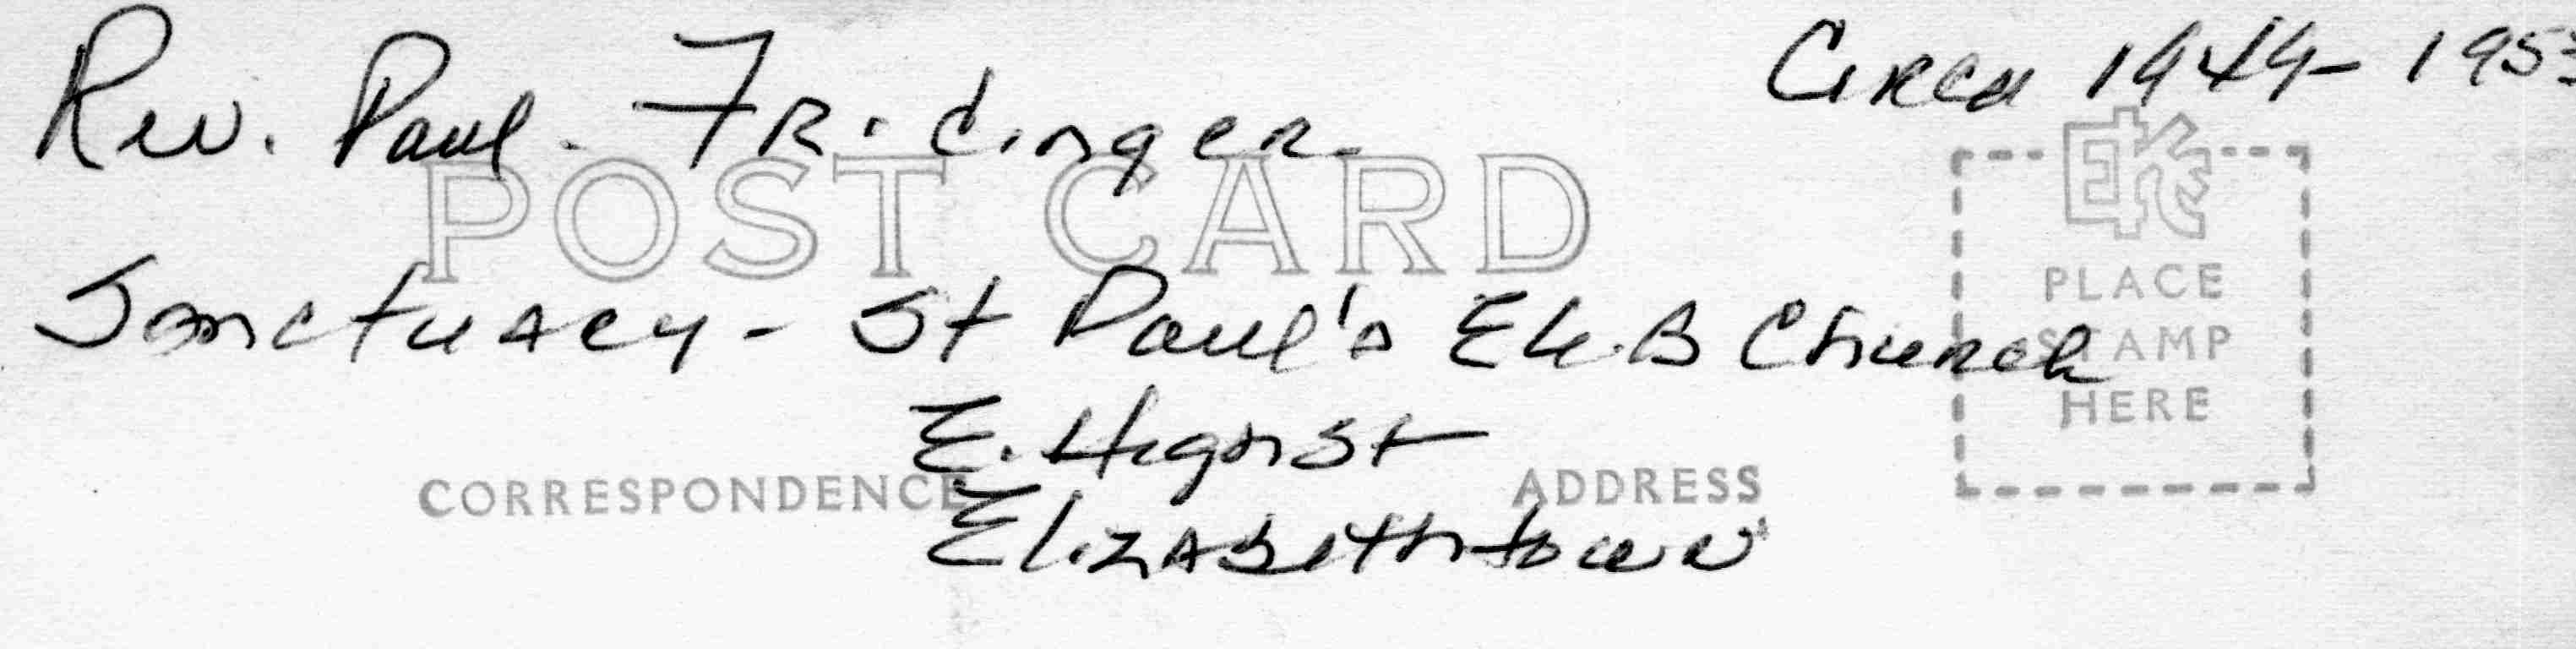 Rev. Paul Fridinger Circa 1949-195
POST CARD
Sanctuary - St Paul's E.U.B Church
PLACE
STAMP
HERE
E. High St
CORRESPONDENCE ADDRESS
Elizabethtown